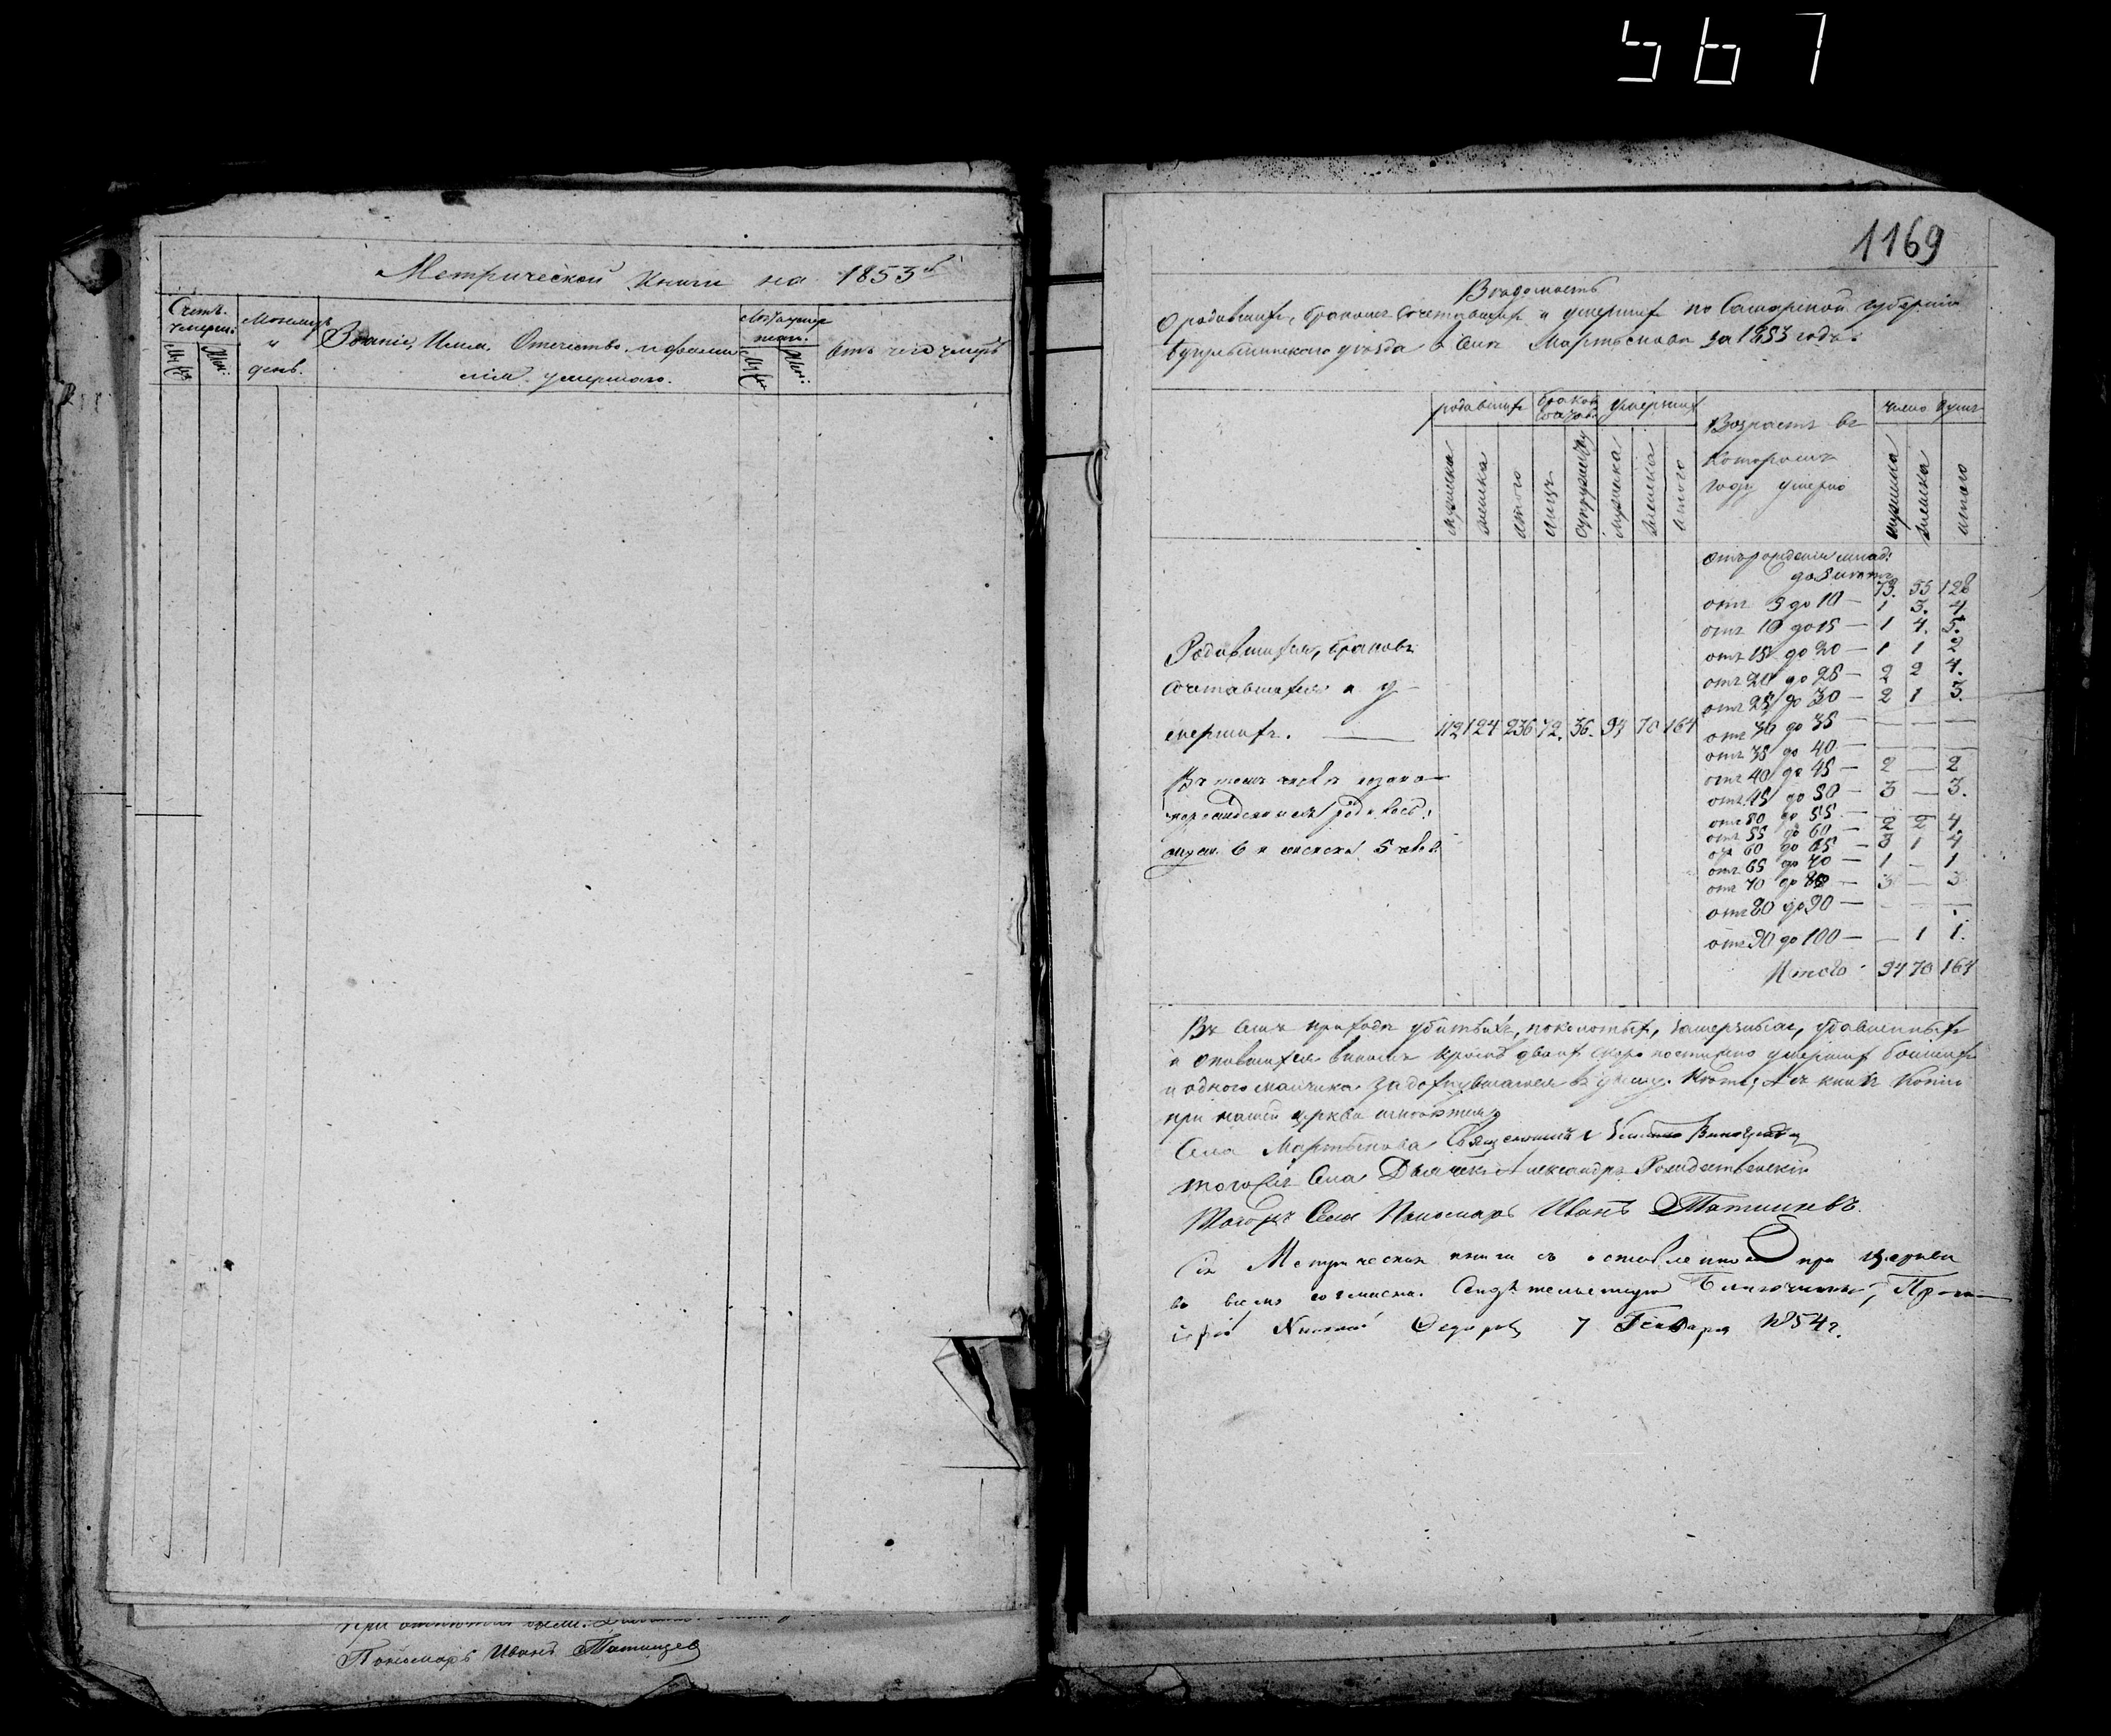 567
Метрической книги на 1853й
Счетъ умерш:
Муж:
Жен:
Месяцъ и день.
Званіе, Имя, Отечество и фамилія умершаго.
Лѣта умершаго
Муж:
Жен:
Отъ чего умеръ
при
Пономарь Иванъ Татищев
1169
Вѣдомость
О родившихся, бракомъ сочетавшихся и умершихъ по Самарской губерніи
Бугульминскаго уѣзда в селѣ Мартыновка за 1853 годъ.
родившихся
браком сочет.
умершихъ
Возрастъ въ которомъ году умерло
число душъ
мужеска
женска
итого
лицъ
супружествъ
мужеска
женска
итого
мужеска
женска
итого
отъ рожденія млад:
до 5 летъ 73. 55 128
отъ 5 до 10 — 1 3. 4
отъ 10 до 15 — 1 4. 5.
отъ 15 до 20 — 1 1 2
отъ 20 до 25 — 2 2 4.
отъ 25 до 30 — 2 1 3.
отъ 30 до 35 — — — —
отъ 35 до 40 — — — —
отъ 40 до 45 — 2 — 2
отъ 45 до 50 — 3 — 3.
отъ 50 до 55 —
отъ 55 до 60 — 2 2 4
отъ 60 до 65 — 3 1 4
отъ 65 до 70 — 1 — 1
отъ 70 до 80 — 3 — 3
отъ 80 до 90 — — — —
отъ 90 до 100 — — 1 1.
Итого 94 70 164
Родившихся, браковъ
сочетавшихся и у-
мершихъ. — 112 124 236 72. 36. 94 70 164
Въ томъ числѣ
муж. 6 и женска 5 чел:
Въ семъ приходѣ убитыхъ, замерзшихъ, удавленныхъ
и опившихся виномъ кромѣ двоихъ скоропостижно умершихъ
и одного мальчика задохнувшагося въ дыму. Книгъ копіи
при нашей церкви имѣются
Села Мартынова Священникъ Виноградовъ
тогожъ Села Дьячекъ Александръ Рождественскій
Тогожъ Села Пономарь Иванъ Татищевъ.
Сія Метрическая книга съ оставленною при церкви
во всемъ согласна. Свидѣтельствую Благочинный, Прото-
іерей Федоровъ 7 Генваря 1854 г.